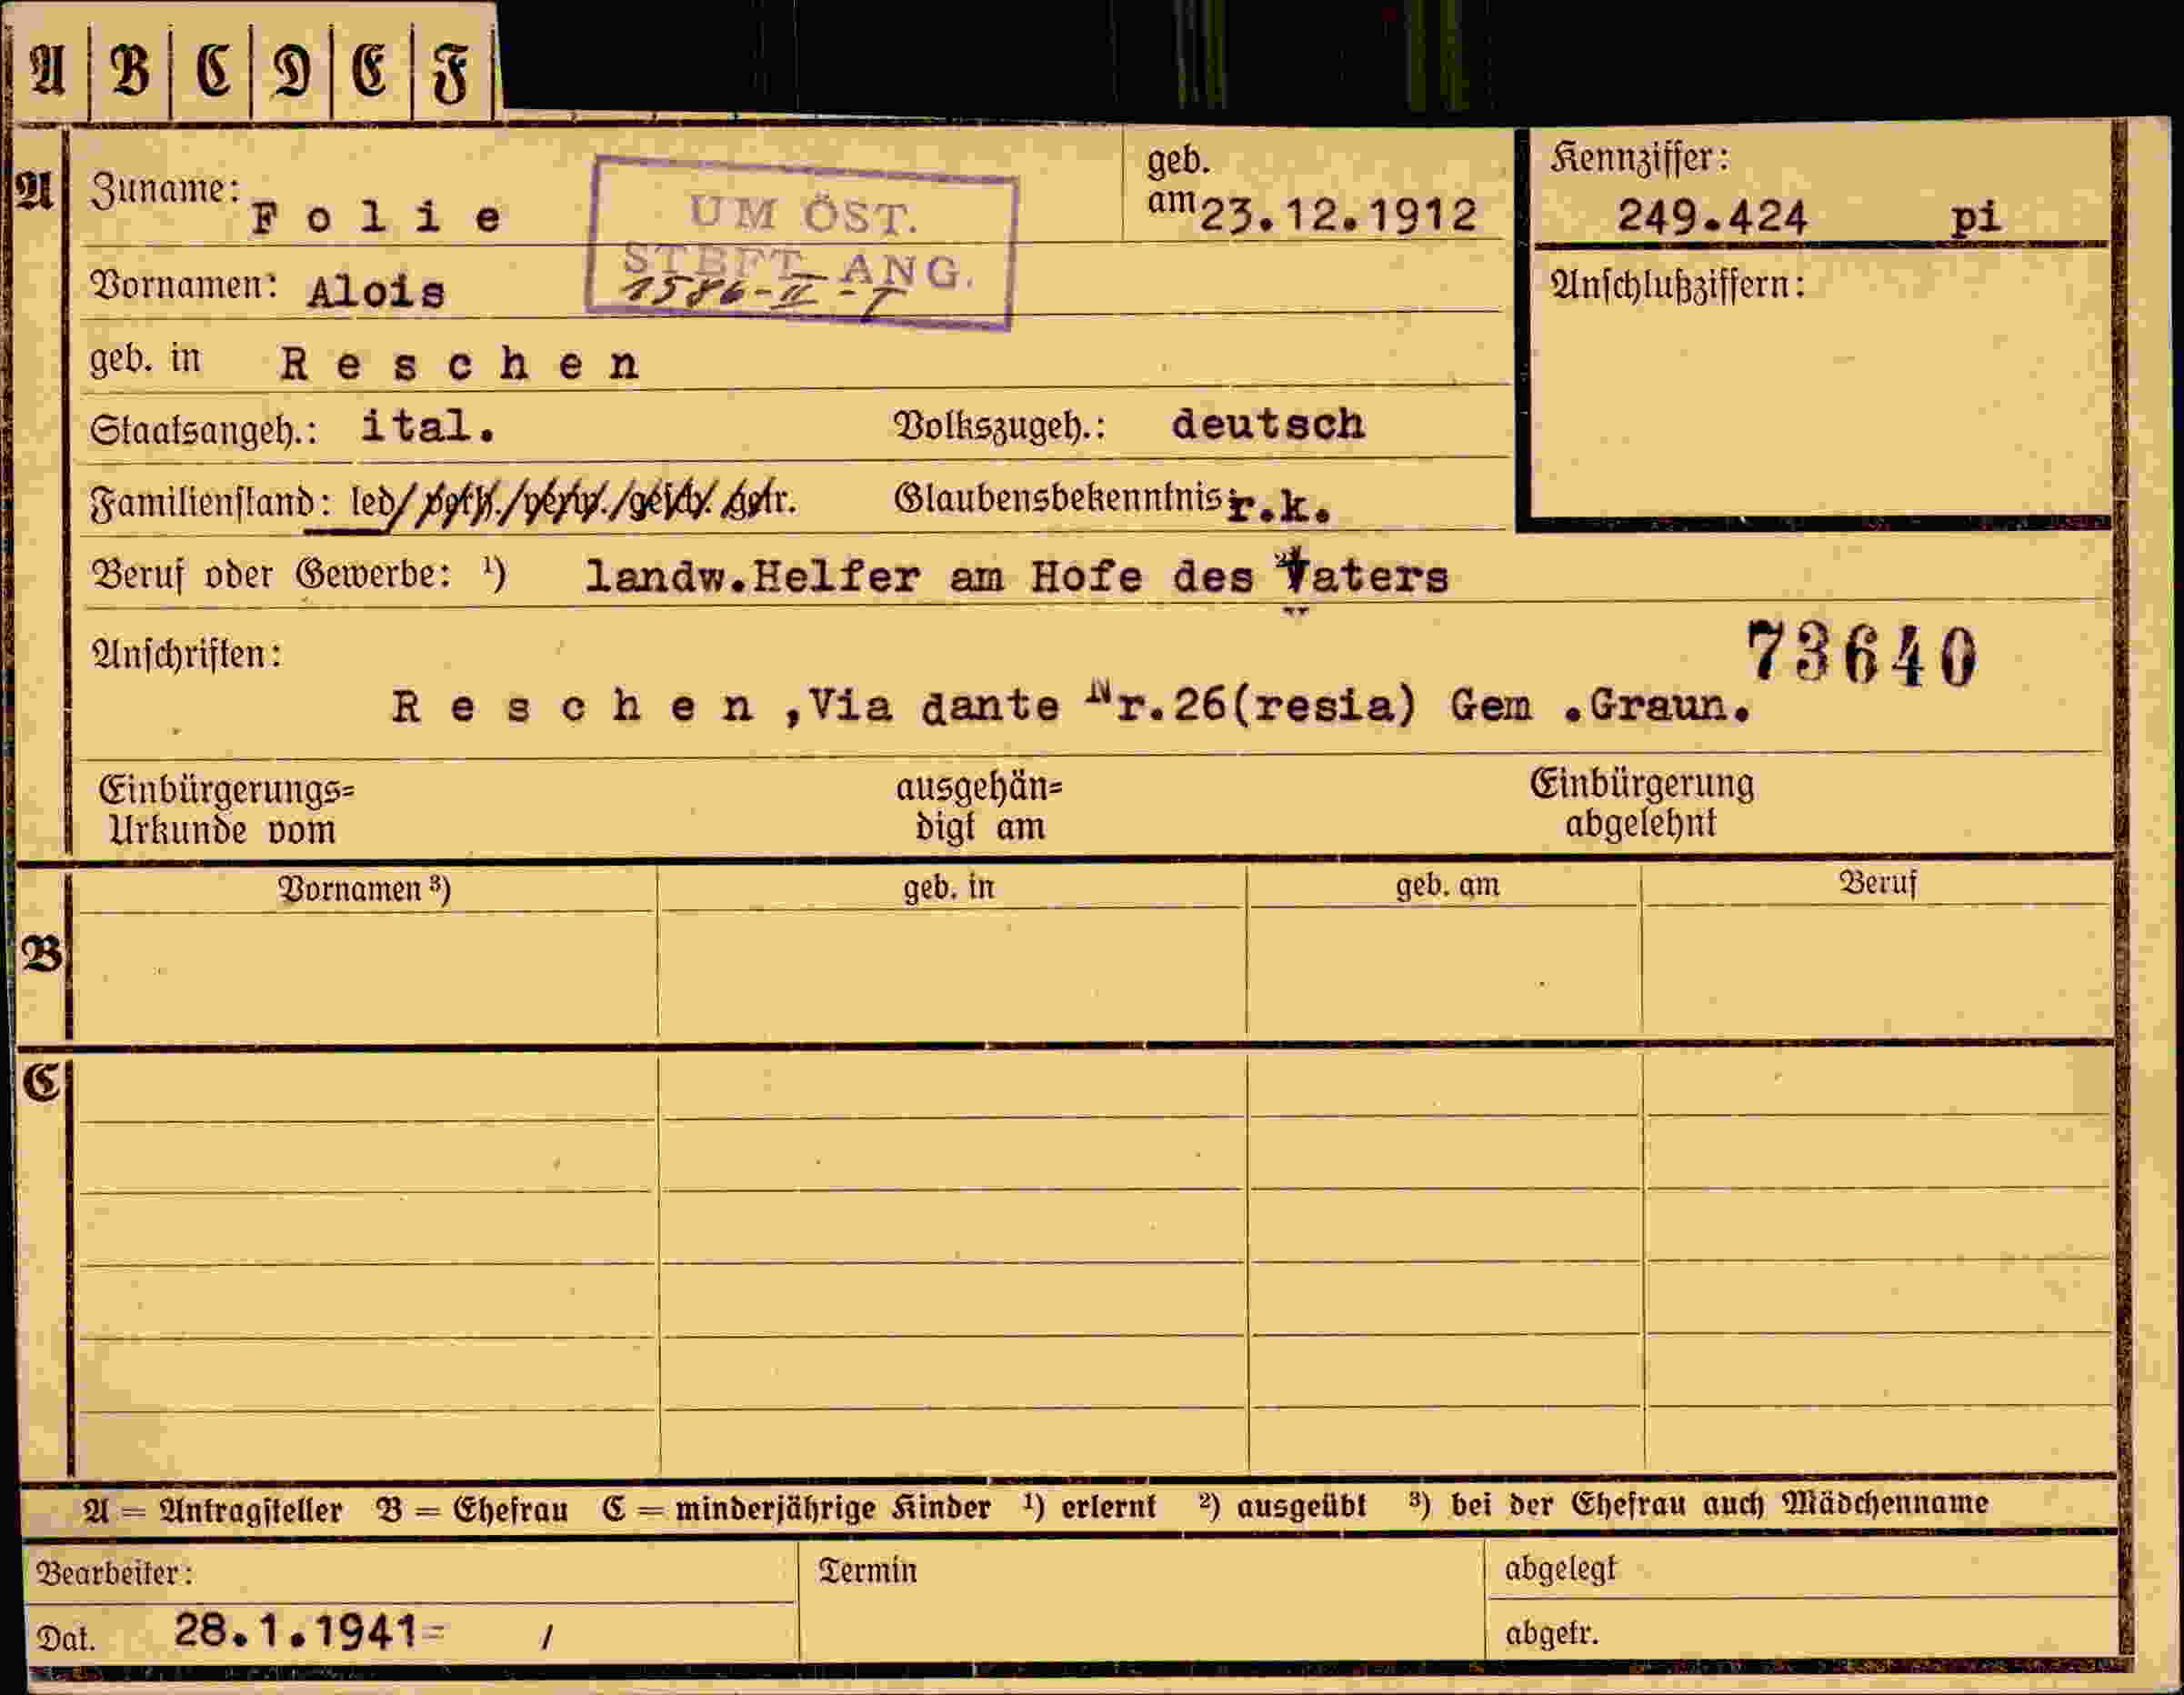 A B C D E F
A
Zuname: Folie
UM ÖST.
STBFT. ANG.
1586-II-T
geb. am 23.12.1912
Kennziffer:
249.424 pi
Vornamen: Alois
Anschlußziffern:
geb. in Reschen
Staatsangeh.: ital. Volkszugeh.: deutsch
Familienstand: led/ verh./verw./gesch. getr. Glaubensbekenntnis: r.k.
Beruf oder Gewerbe: ¹) landw.Helfer am Hofe des Vaters
73640
Anschriften:
Reschen ,Via dante Nr.26(resia) Gem .Graun.
Einbürgerungs= ausgehän= Einbürgerung
Urkunde vom digt am abgelehnt
B
Vornamen ³) geb. in geb. am Beruf
C
A = Antragsteller B = Ehefrau C = minderjährige Kinder ¹) erlernt ²) ausgeübt ³) bei der Ehefrau auch Mädchenname
Bearbeiter: Termin abgelegt
Dat. 28.1.1941= / abgetr.